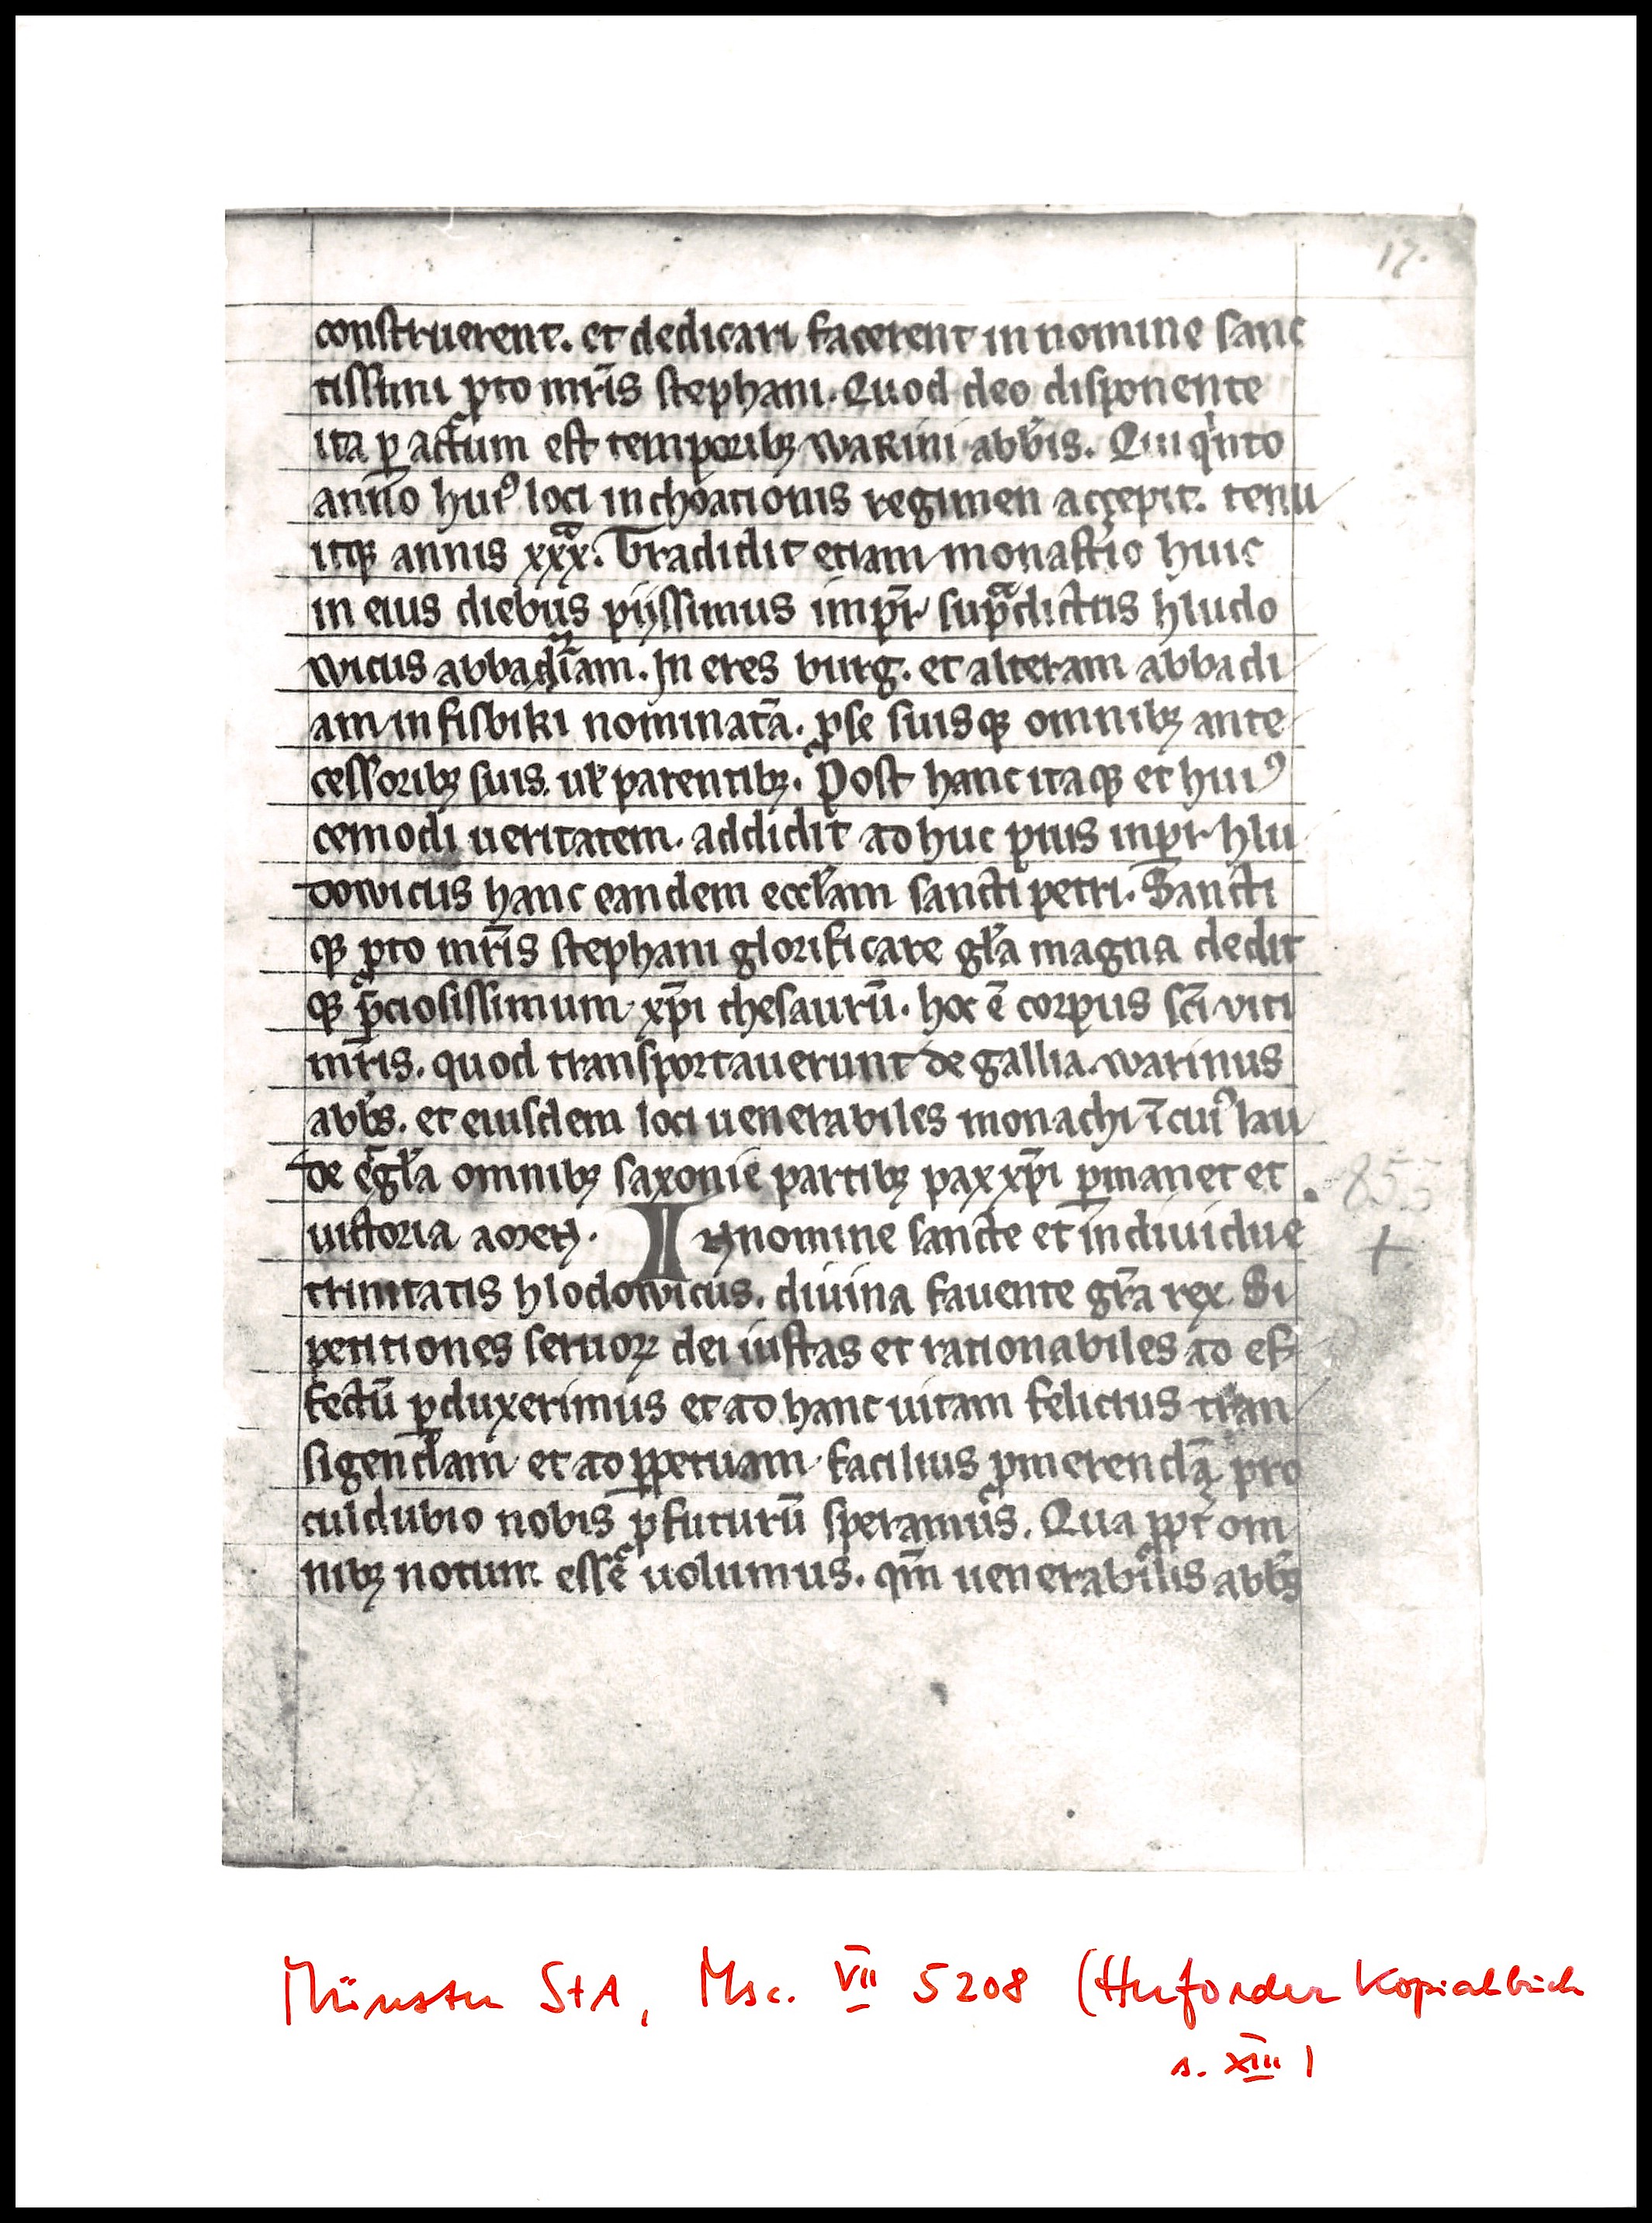 17.
construerent. et dedicari facerent in nomine sanc
tissimi ꝓto mr̄is stephani. Quod deo disponente
ita ꝑ actum est temporibꝫ warini abb̄is. Qui qͥnto
anno huiꝰ loci inchoationis regimen accepit. tenu
itqꝫ annis xxxᵃ. Tradidit etiam monast̄io huic
in eius diebus piissimus imp̄r supᵃdictus hludo
wicus abbadiam. In eres burg. et alteram abbadi
am in fisbiki nominatā. ꝓ se suisqꝫ omnibꝫ ante
cessoribꝫ suis. ul̄ parentibꝫ. Post hanc itaqꝫ et huiꝰ
cemodi ueritatem. addidit ad huc pius inpr̄ hlu
dowicus hanc eandem eccl̄am sancti petri. Sancti
qꝫ ꝓto mr̄is stephani glorificare gl̄a magna dedit
qꝫ p̄ciosissimum xp̄i thesaurū. hoc ē corpus sc̄i viti
mr̄is. quod transportauerunt de gallia. warinus
abb̄s. et eiusdem loci uenerabiles monachi ī cuiꝰ lau
de et gl̄a omnibꝫ saxonie partibꝫ pax xp̄i ꝑmanet et
uictoria amen.
In nomine sancte et indiuidue
855
+
trinitatis hlodowicus. diuina fauente gr̄a rex. Si
petitiones seruoꝝ dei iustas et rationabiles ad ef
fectū ꝑduxerimus et ad hanc uitam felicius tran
sigendam et ad ꝑpetuam facilius ꝓmerendā pro
culdubio nobis ꝓfuturū speramus. Qua ꝓpt̄ om
nibꝫ notum esse uolumus. qm̄ uenerabilis abb̄s
Münster StA, Msc. VII 5208 (Herforder Kopialbuch
s. XIII)